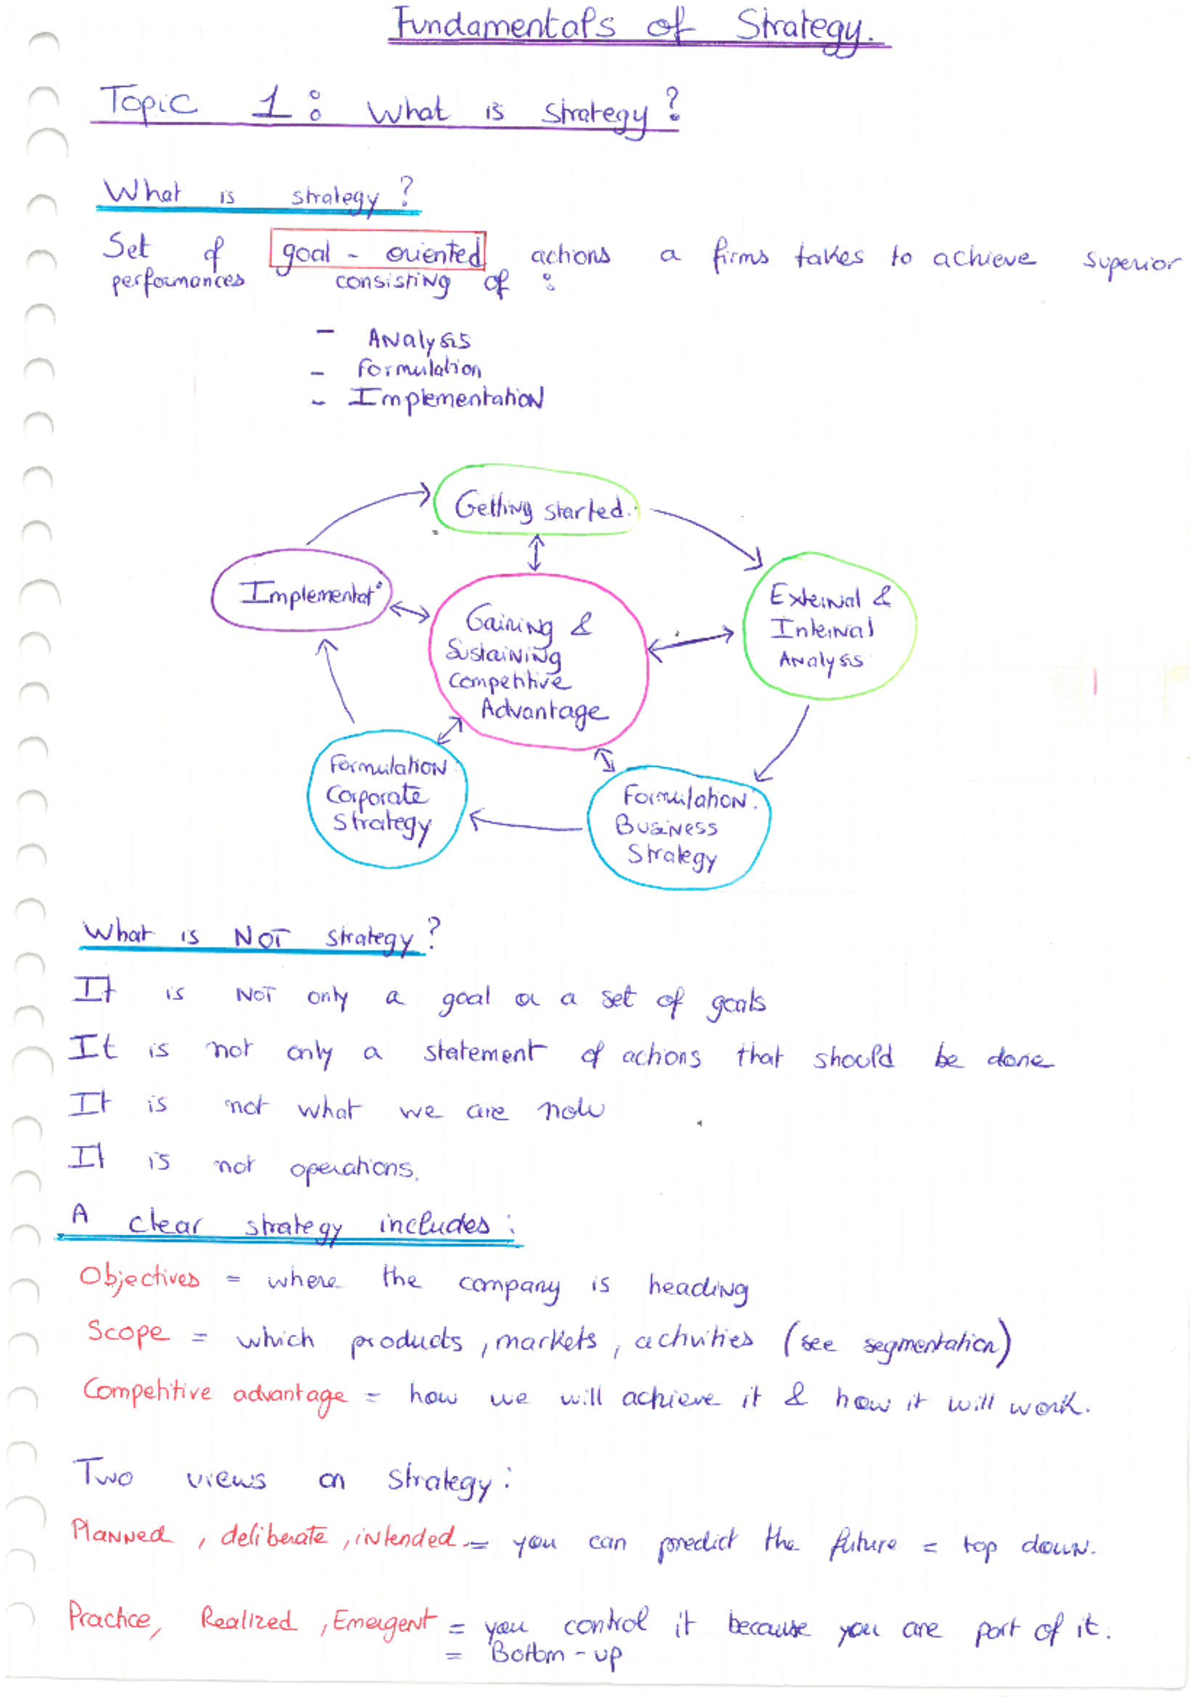 Fundamentals of Strategy.
Topic 1: What is strategy?
What is strategy?
Set of goal-oriented actions a firms takes to achieve superior
performances consisting of :
- Analysis
- Formulation
- Implementation
Getting started.
Implementat°
External &
Internal
Analysis
Gaining &
Sustaining
Competitive
Advantage
Formulation:
Corporate
Strategy
Formulation:
Business
Strategy
What is NOT strategy?
It is NOT only a goal or a set of goals
It is not only a statement of actions that should be done
It is not what we are now
It is not operations.
A clear strategy includes:
Objectives = where the company is heading
Scope = which products, markets, activities (see segmentation)
Competitive advantage = how we will achieve it & how it will work.
Two views on strategy:
Planned, deliberate, intended = you can predict the future = top down.
Practice, Realized, Emergent = you control it because you are part of it.
= Bottom-up